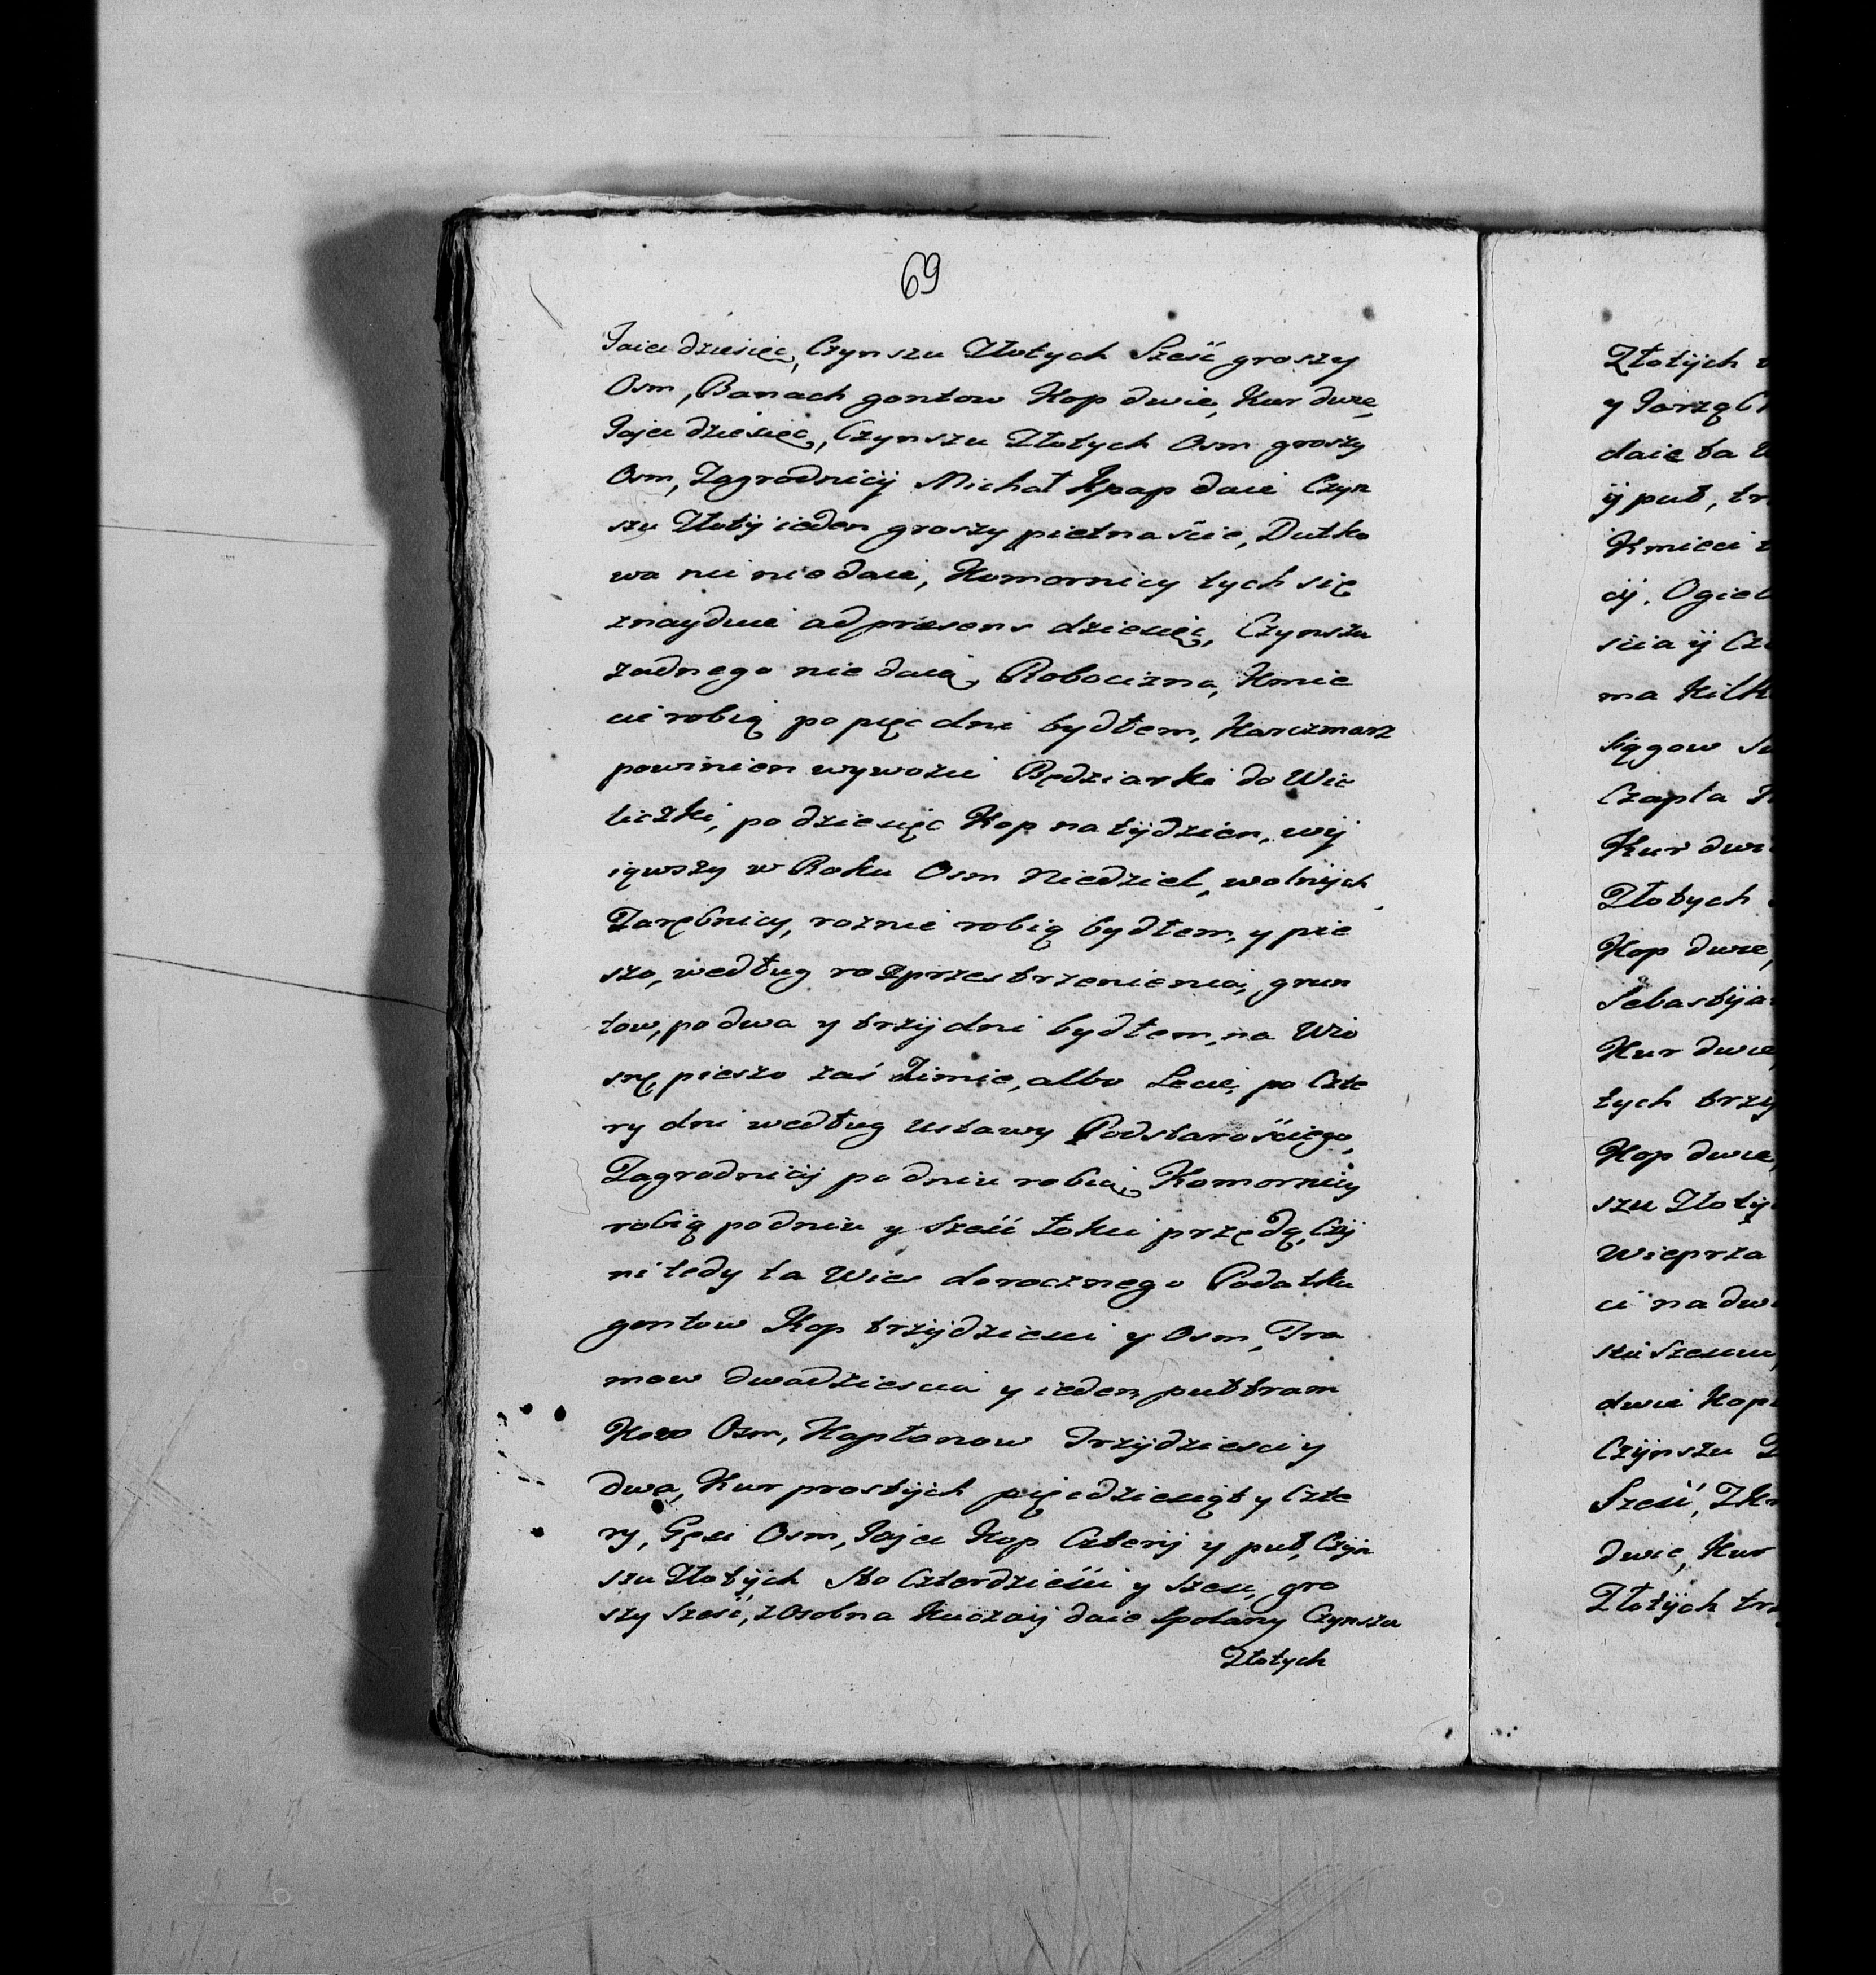 69
Jaiec dziesięc, Czynszu Złotych Sześć groszy
Osm, Banach gontow Kop dwie, Kur dwie,
Jajec dziesięc, Czynszu Złotych Osm groszy
Osm, Zagrodnicÿ Michał Kpap daie Czyn
szu Złotÿ ieden groszy pietnaście, Dutko
wa nic nie daie, Komornicy tych się
znayduie ad præsens dziesięc, Czynszu
zadnego nie daią, Robocizna, Kmie
cie robią po pięc dni bydłem, Karczmarz
powinien wywozić Będziarki do Wie
liczki, po dziesięc Kop na tÿdzien, wÿ
iąwszy w Roku Osm Niedziel, wolnÿch
Zarębnicy, roznie robią bydłem, y pie
szo, według rozprzestrzenienia, grun
tow, po dwa y trzÿ dni bydłem, na Wio
snę, pieszo zaś Zimie, albo Lecie, po Czte
ry dni według ustawy Podstarościego,
Zagrodnicÿ po dniu robią, Komornicy
robią po dniu y Sześć łokci przędą, Czÿ
ni tedy ta Wies dorocznego Podatku
gontow Kop trzÿdziesci y Osm, Tra
mow dwadziescia y ieden, puł tram
Kow Osm, Kapłonow Trzÿdziesci y
dwa, Kur prostÿch pięcdziesiąt y Czte
ry, Gęsi Osm, Jajec Kop Czterÿ y puł, Czÿn
szu Złotÿch Sto Czterdzieści y Szesc, gro
szy Sześć, z Osobna Kuczaÿ daie Spolany Czynszu
Złotych
Złotÿch
y Jarzą
daie ta
ÿ puł,
Kmieci
cÿ. Ogie
scia ÿ
ma Kilk
siągow
Czapla
Kur dwi
Złotych
Kop dwie,
Sebastÿa
Kur dwie,
tych trzy
Kop dwie,
szu Złotÿ
Wieprza
ci na dw
dwie Kop
Czÿnszu
Sześć,
dwie, Kur
Złotÿch